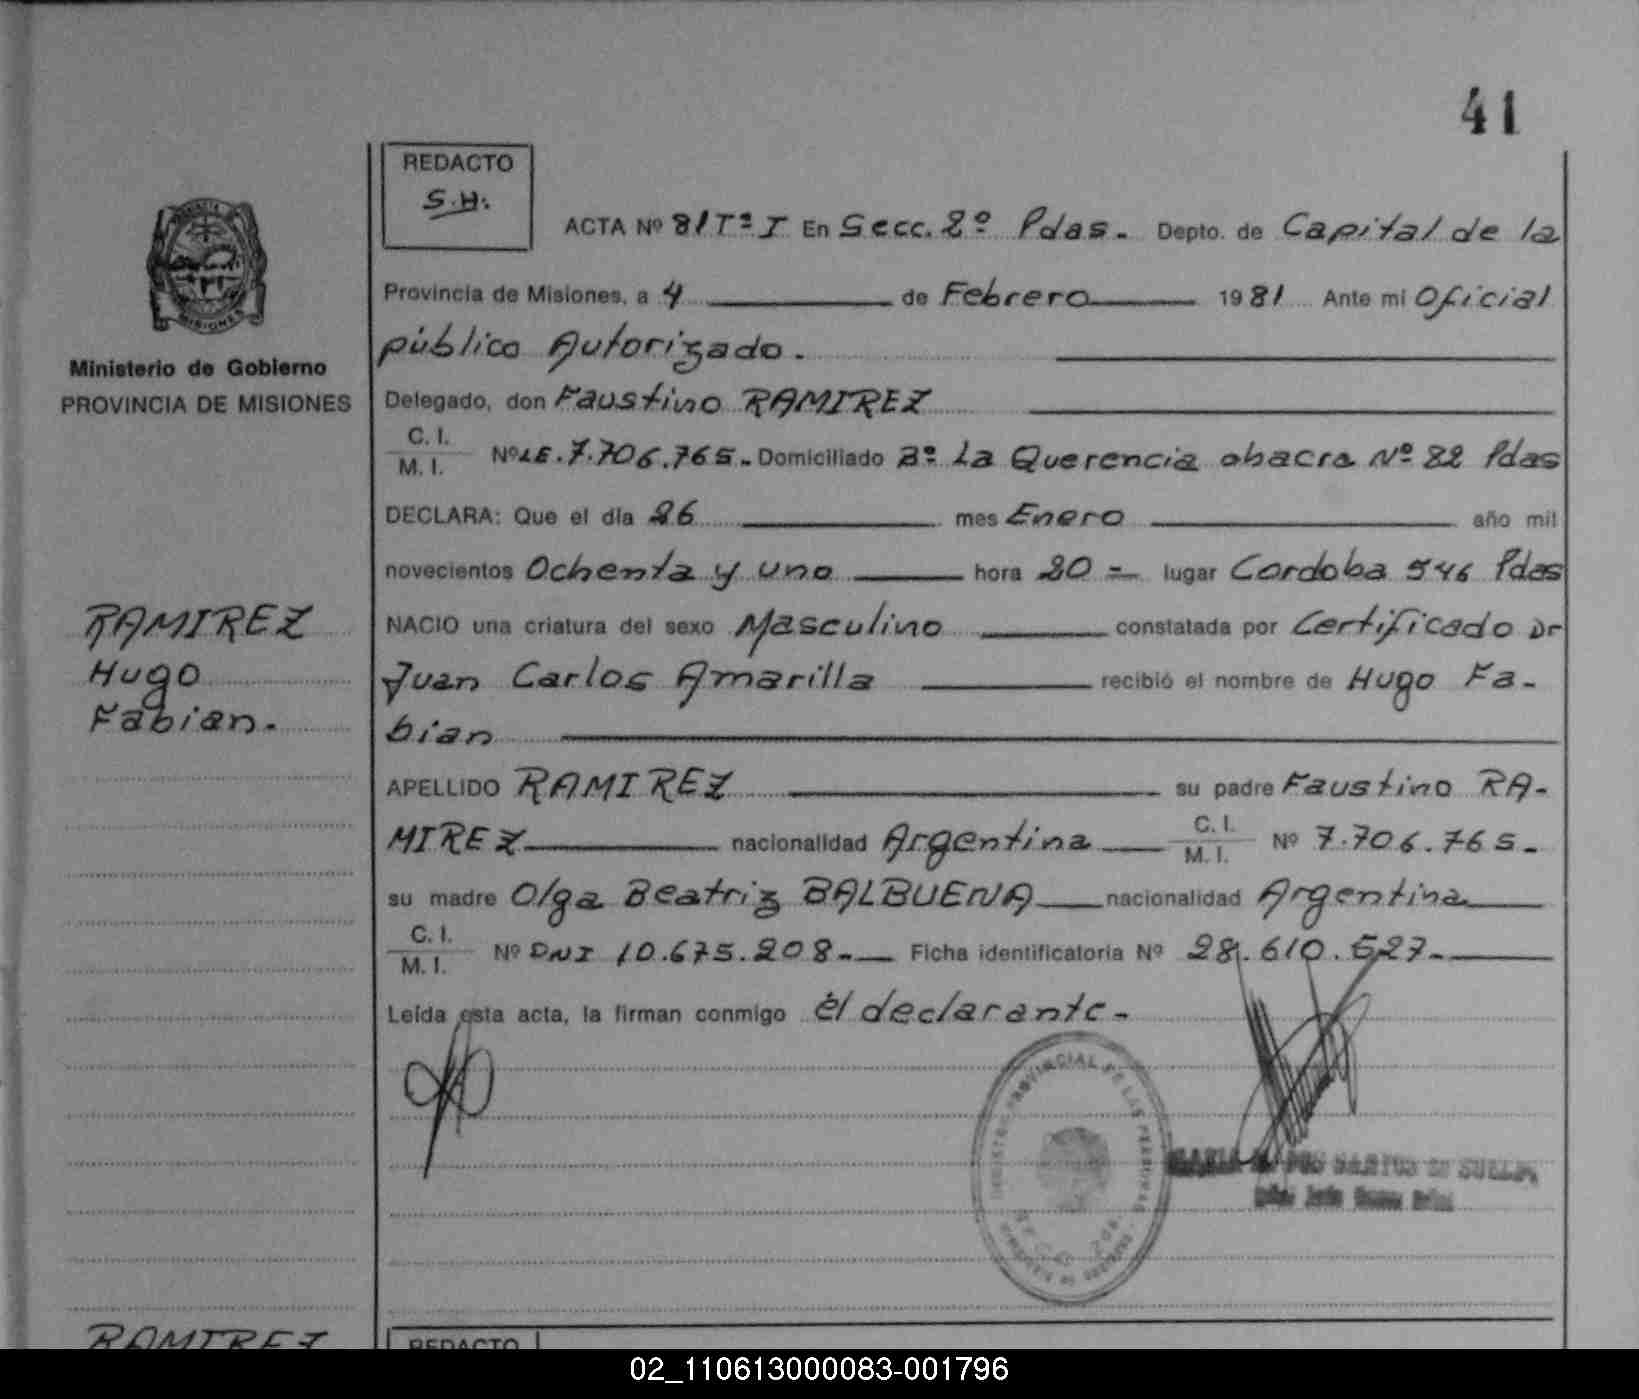 41
REDACTO
S.H.
ACTA Nº 81 Tº I En Secc. 2º Pdas. Depto. de Capital de la
Provincia de Misiones, a 4 de Febrero 1981 Ante mi Oficial
público Autorizado.
Ministerio de Gobierno
PROVINCIA DE MISIONES
Delegado, don Faustino RAMIREZ
C. I.
M. I. Nº LE. 7.706.765. Domiciliado Bº La Querencia chacra Nº 82 Pdas
DECLARA: Que el día 26 mes Enero año mil
novecientos Ochenta y uno hora 20 = lugar Cordoba 546 Pdas
RAMIREZ
Hugo
Fabian.
NACIO una criatura del sexo Masculino constatada por Certificado Dr
Juan Carlos Amarilla recibió el nombre de Hugo Fa-
bian
APELLIDO RAMIREZ su padre Faustino RA-
MIREZ nacionalidad Argentina C. I. M. I. Nº 7.706.765.-
su madre Olga Beatriz BALBUENA nacionalidad Argentina
C. I.
M. I. Nº DNI 10.675.208.- Ficha identificatoria Nº 28.610.527.-
Leída esta acta, la firman conmigo él declarante.-
RAMIREZ
REDACTO
02_110613000083-001796